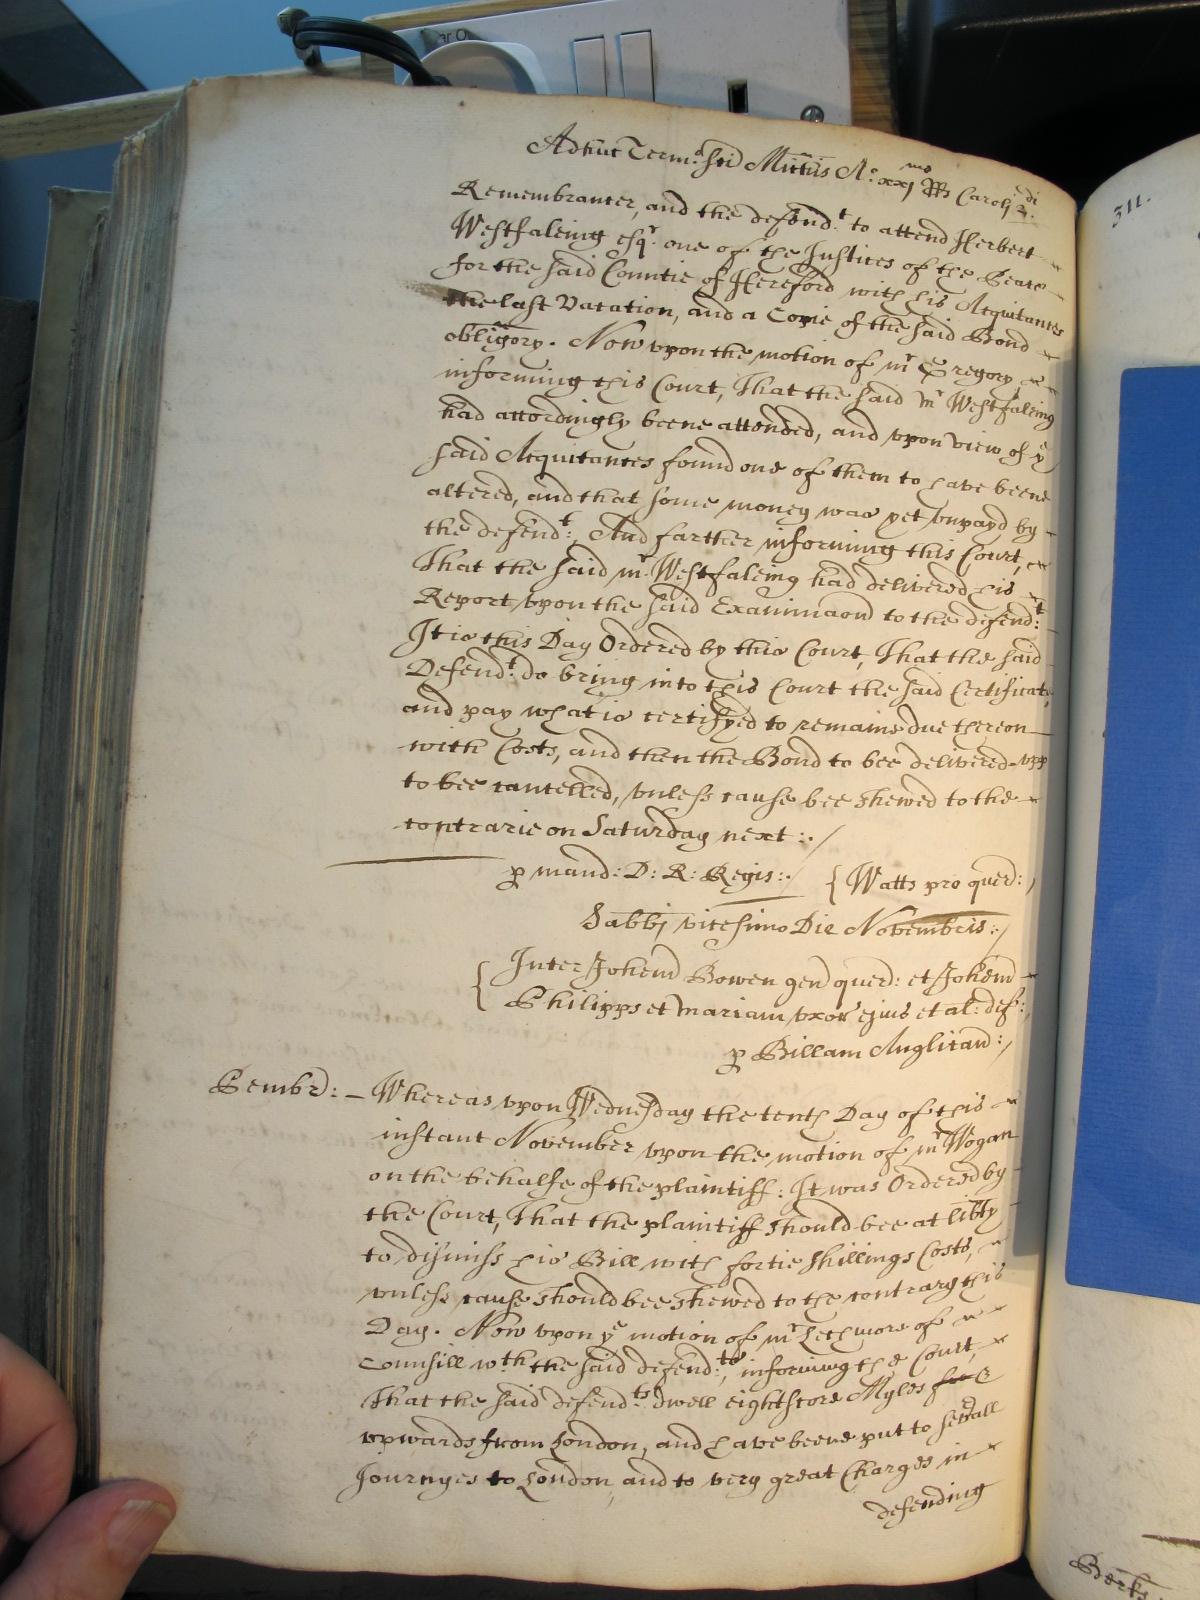 Adhuc Term: Sci Mich̃is Ao: xxjmo RRs Carolj 2di.
Remembrancer, and the defendt: to attend Herbert
Westfaleing esqr. one of the Justices of the Peace
for the said Countie of Hereford with his Acquitances
the last Vacation, and a Copie of the said Bond
obligory. Now vpon the motion of mr Gregory
informing this Court, That the said mr Westfaleing
had accordingly beene attended, and vpon view of ye
said Acquitances found one of them to have beene
altered, and that some money was yet vnpayd by
the defendt:, And farther informing this Court,
That the said mr. Westfaleing had delivered his
Report vpon the said Examinacon to the defendt:
It is this Day Ordered by this Court, That the said
Defendt: do bring into this Court the said Certificate,
and pay what is certifyed to remaine due thereon
with Costs, and then the Bond to bee delivered vpp
to bee cancelled, vnless cause bee shewed to the
contrarie on Saturday next :./
p mand: D: R: Regis:./ {Watts pro quer:/
Sabbj vicesimo Die Novembris:/
{Inter Johem Bowen gen quer: et Johem
Philipps et Mariam vxor ejus et al: def:,
p Billam Anglican:/
Pembr: – Whereas vpon Wednesday the tenth Day of this
instant November vpon the motion of mr Wogan
on the behalfe of the plaintiff: It was Ordered by
the Court, That the plaintiff should bee at libty
to dismiss his Bill with fortie shillings Costs,
vnless cause should bee shewed to the contrary this
Day. Now vpon ye motion of mr Lechmore of
Counsill wth the said defend:ts, informing the Court,
That the said defend:ts dwell eightscore Myles &
vpwards from London, and have beene put to sevall
Journyes to London, and to very great Charges in
defending
311.
Berks